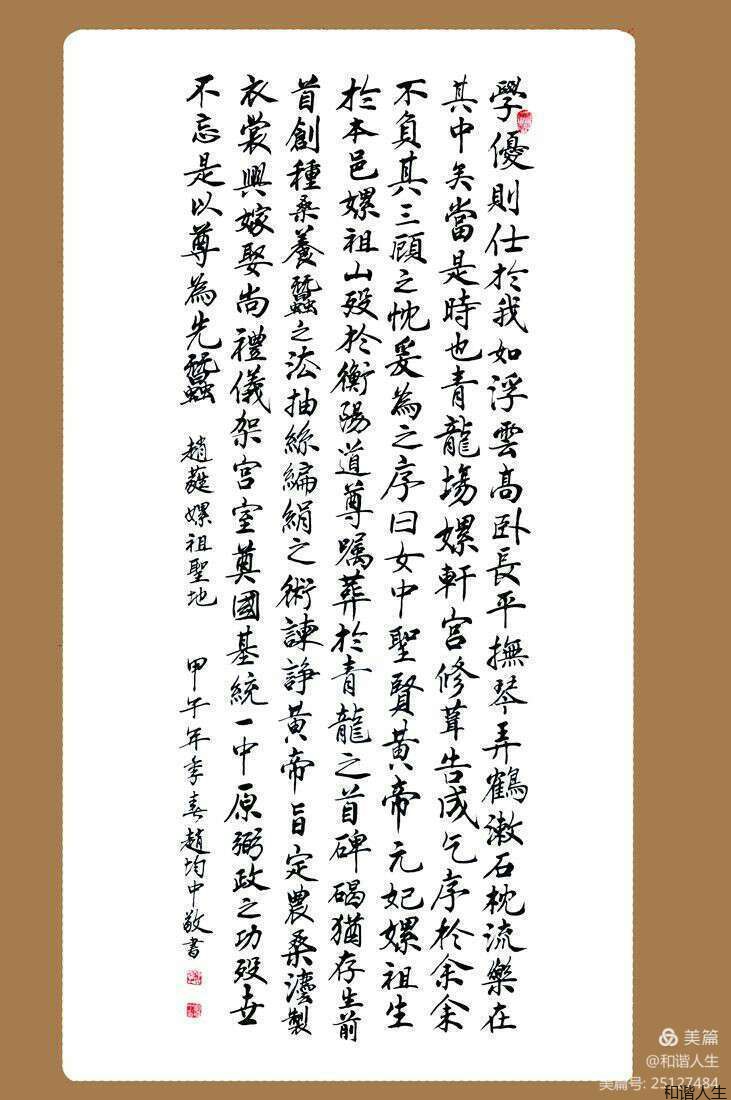 學優則仕於我如浮雲高卧長平撫琴弄鶴漱石枕流樂在
其中矣當是時也青龍場嫘軒宮修葺告成乞序於余余
不負其三顧之忱爰為之序曰女中聖賢黄帝元妃嫘祖生
於本邑嫘祖山殁於衡陽道尊嘱葬於青龍之首碑碣猶存生前
首創種桑養蠶之法抽絲編絹之術諫諍黄帝旨定農桑灋製
衣裳興嫁娶尚禮儀架宮室奠國基統一中原弼政之功殁世
不忘是以尊為先蠶
趙蕤嫘祖聖地
甲午年季春趙均中敬書
美篇
@和谐人生
美篇号: 25127484
和谐人生